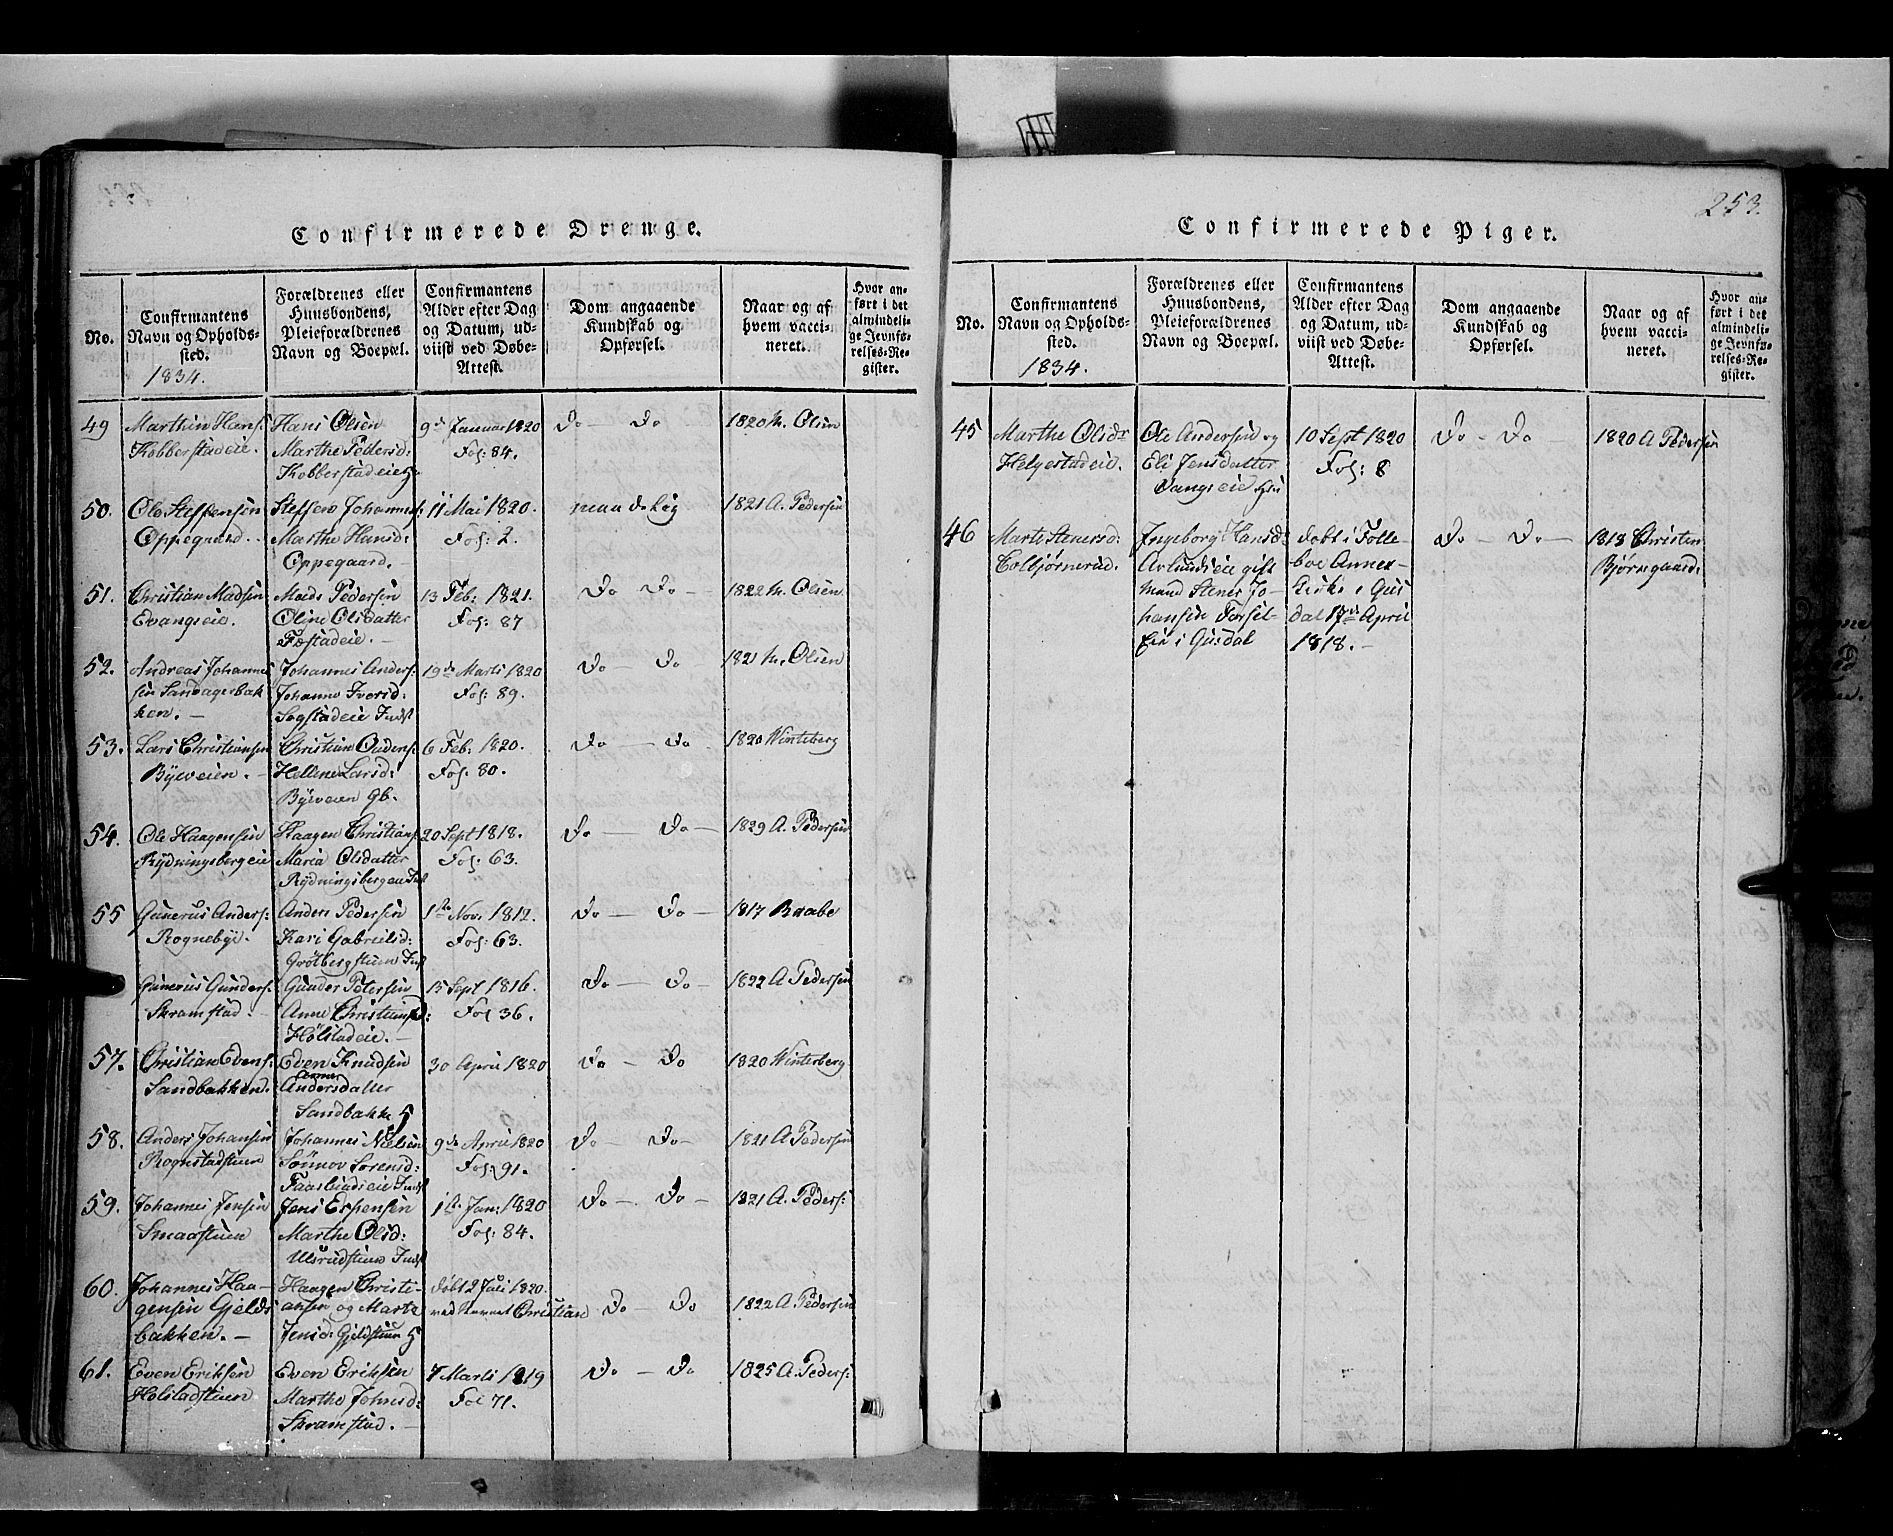 Confirmerede Drenge.
No.
Confirmantens
Navn og Opholds-
sted.
1834.
Forældrenes eller
Huusbondens,
Pleieforældrenes
Navn og Boepæl.
Confirmantens
Alder efter Dag
og Datum, ud-
viist ved Døbe-
Attest.
Dom angaaende
Kundskab og
Opførsel.
Naar og af
hvem vacci-
neret.
Hvor an-
ført i det
almindeli-
ge Jevnfø-
relses-Re-
gister.
49
Marthin Hans:
Kobberstadeie.
Hans Olsen
Marthe Pedersd:
Kobberstadeie
9de Januar 1820
Fol: 84.
Do - Do
1820 M. Olsen
50.
Ole Steffensen
Oppegaard.
Steffen Johannes:
Marthe Hansd:
Oppegaard.
11 Mai 1820.
Fol: 2.
maadelig
1821 A. Pedersen
51.
Christian Madsen
Evangseie.
Mads Pedersen
Oline Olsdatter
13 Feb: 1821.
Fol: 87
Do Do -
1822 M. Olsen
52.
Andreas Johanne
sen Sandagerbak
ken. -
Johannes Anders:
Johanne Iversd:
Sogstadeie Indst
19de Marti 1820
Fol: 89.
Do - Do
1821 M. Olsen
53.
Lars Christiansen
Byeveien. -
Christian
Hellene Larsd:
Byeveien gb.
6 Feb: 1820.
Fol: 80.
Do - Do
1820 Winteberg
54.
Ole Haagensen
Rydningsbergeie
Haagen Christians:
Maria Olsdatter
Rydningsbergeie Indst
20 Sept 1818.
Fol: 63.
Do - Do -
1829 A. Pedersen
55
Gunerus Anders:
Rognebye.
Anders Pedersen
Kari Gabrielsd:
Grotbergstuen Indst
1ste Nov: 1812.
Fol: 63.
Do - Do -
1817 Raabe
Gunerus Gunders:
Skramstad. -
Gunder Petersen
Anne Christiansd:
Holstadeie. -
15 Sept 1816.
Fol 36.
Do - Do -
1822 A Pedersen
57.
Christian Evens:
Sandbakken.
Even Knudsen
Anne
Andersdatter
Sandbakke
30 April 1820
Do - Do
1820 Winterberg
58.
Anders Johansen
Rognstadstuen
Johannes Nielsen
Sønnov Sorensd:
Faaslundseie Indst
9de April 1820
Fol: 91.
Do - Do -
1821 A Pedersen
59.
Johannes Jensen
Smaastuen
Jens Espensen
Marthe Olsd:
Ulsrudstuen Indst
1ste Jan: 1820
Fol: 84.
Do - Do -
1821 A. Peders:
60.
Johannes Haa-
gensen Gjelds
bakken. -
Haagen Christi-
ansen og Marte
Jensd: Gjeldstuen
døbt 2 Juli 1820.
ved Navnet Christian
Do - Do
1822 A Pedersen
61.
Even Eriksen
Holstadstuen
Even Eriksen
Marthe Johnsd:
Skramstad. -
7 Marti 1819
Fol 71.
Do - Do
1825 A. Peders:
253.
Confirmerede Piger.
No.
Confirmantens
Navn og Opholds-
sted.
1834.
Forældrenes eller
Huusbondens,
Pleieforældrenes
Navn og Boepæl.
Confirmantens
Alder efter Dag
og Datum, ud-
viist ved Døbe-
Attest.
Dom angaaende
Kundskab og
Opførsel.
Naar og af
hvem vacci-
neret.
Hvor an-
ført i det
almindeli-
ge Jevnfø-
relses-Re-
gister.
45
Marthe Olsdr
Helgestadeie.
Ole Andersen og
Eli Jensdatter
Vangseie
10 Sept 1820
Fol: 8
Do - Do
1820 A Pedersen
46
Marte Stenersd:
Colbjørnerud.
Ingeborg Hansd:
gift
Mand Stener Jo-
hansen
Eie i Gusdal
døbt i Folle-
boe Annex-
Kirke i Gus
dal 17de April
1818. -
Do - Do -
1818 Christen
Bjørngaard.